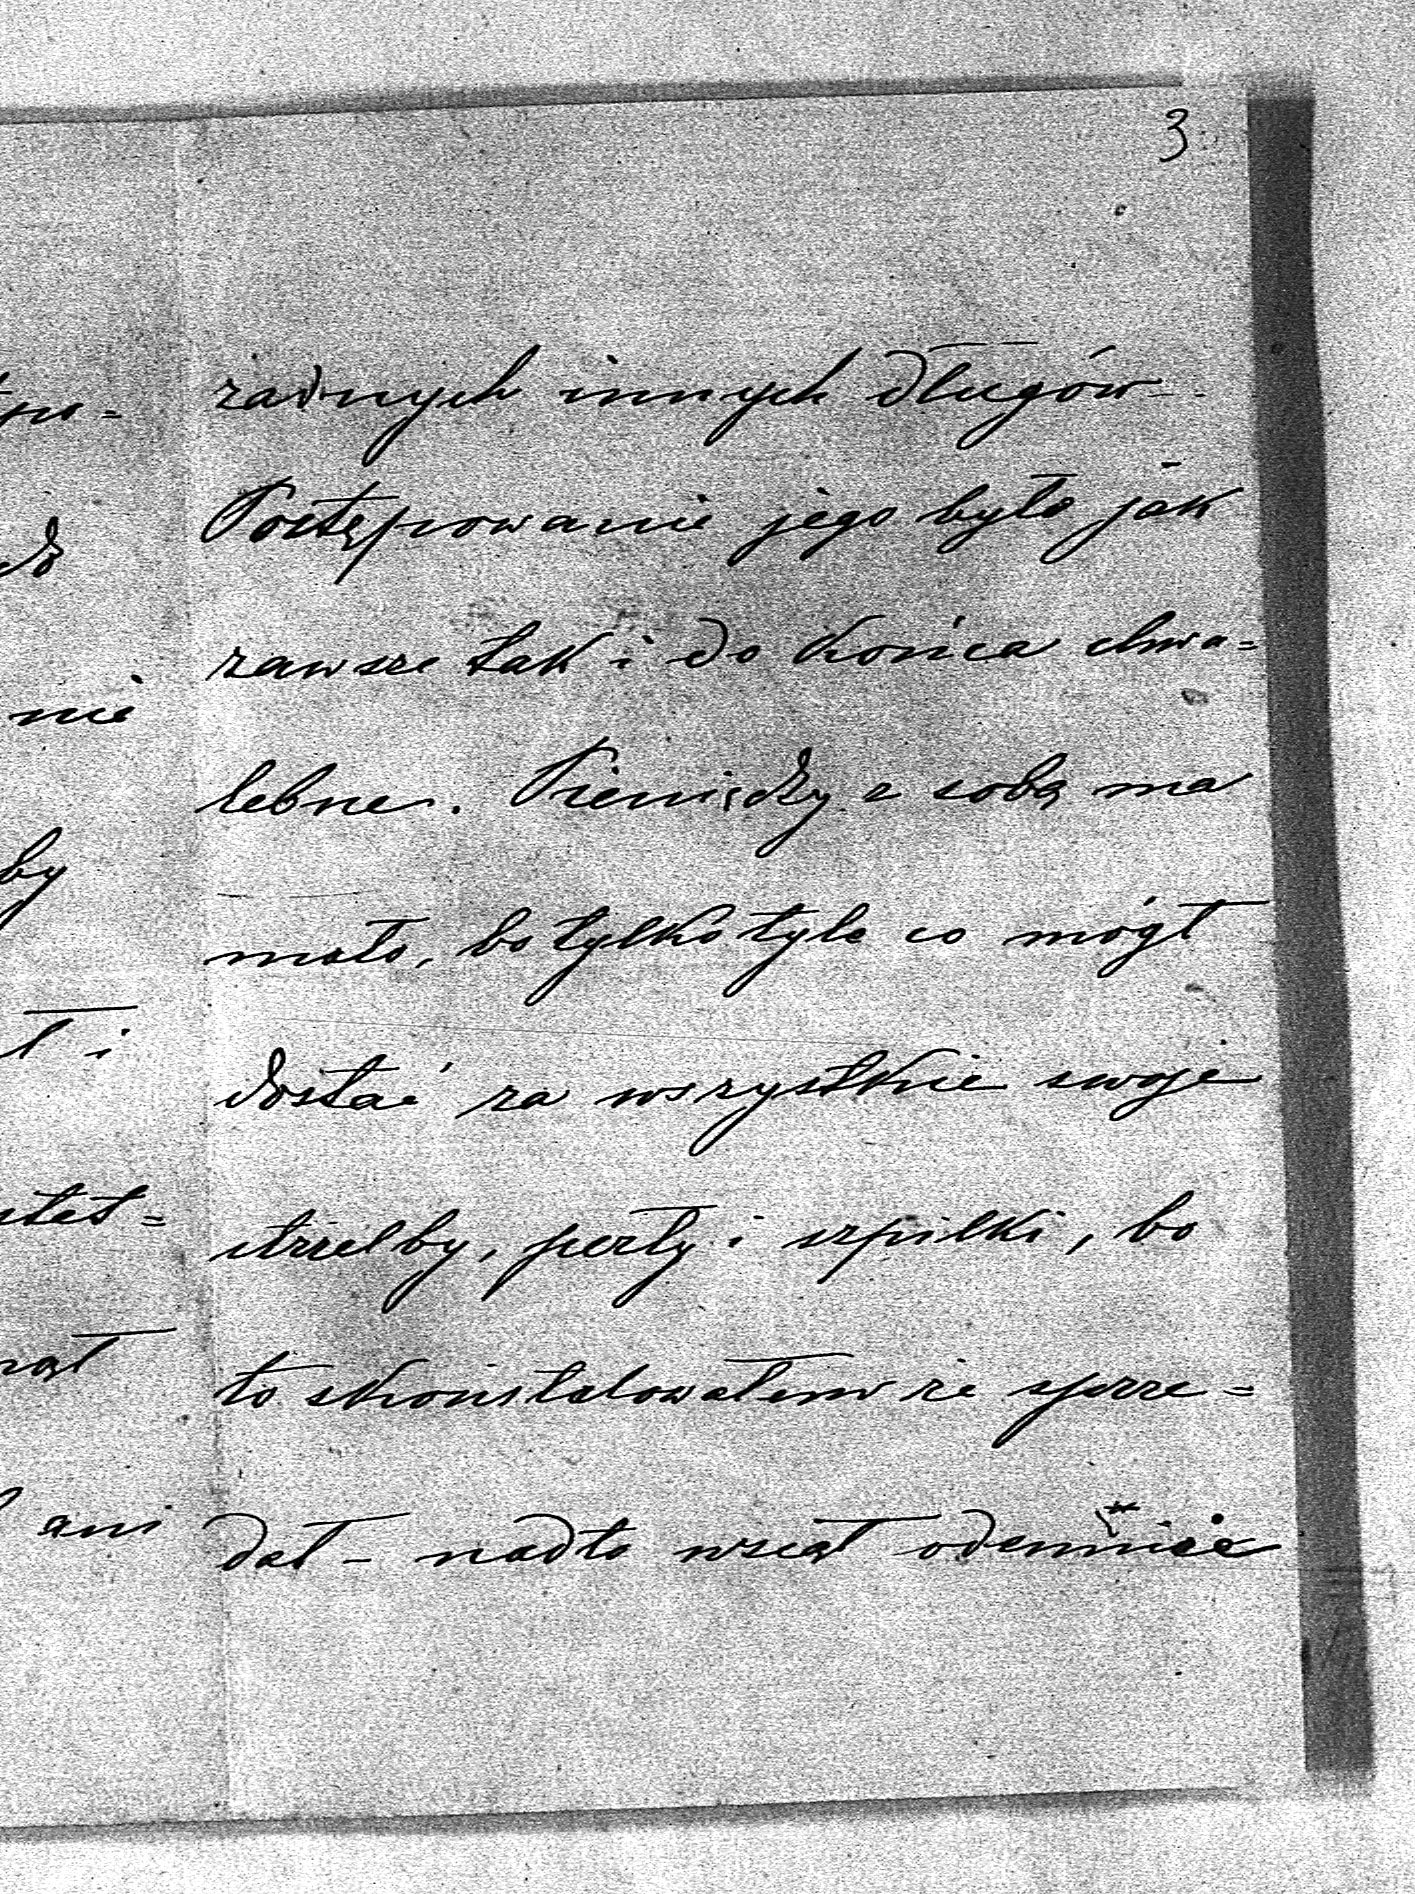 3
żadnych innych długów.
Postępowanie jego było jak
zawsze tak i do końca chwa=
lebne. Pieniędzy z sobą ma
mało, bo tylko tyle co mógł
dostać za wszystkie swoje
strzelby, perły i szpilki, bo
to skonstatowałem że sprze=
dał – nadto wziął odemnie
nie
by
ł i
ani